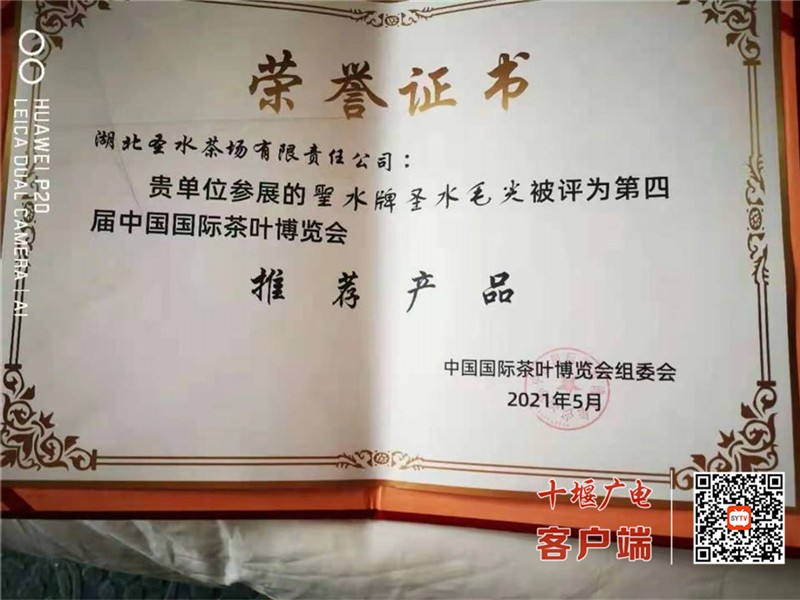 荣誉证书
湖北圣水茶场有限责任公司：
贵单位参展的聖水牌圣水毛尖被评为第四
届中国国际茶叶博览会
推荐产品
中国国际茶叶博览会组委会
2021年5月
HUAWEI P20
LEICA DUAL CAMERA | AI
十堰广电
客户端
SYTV